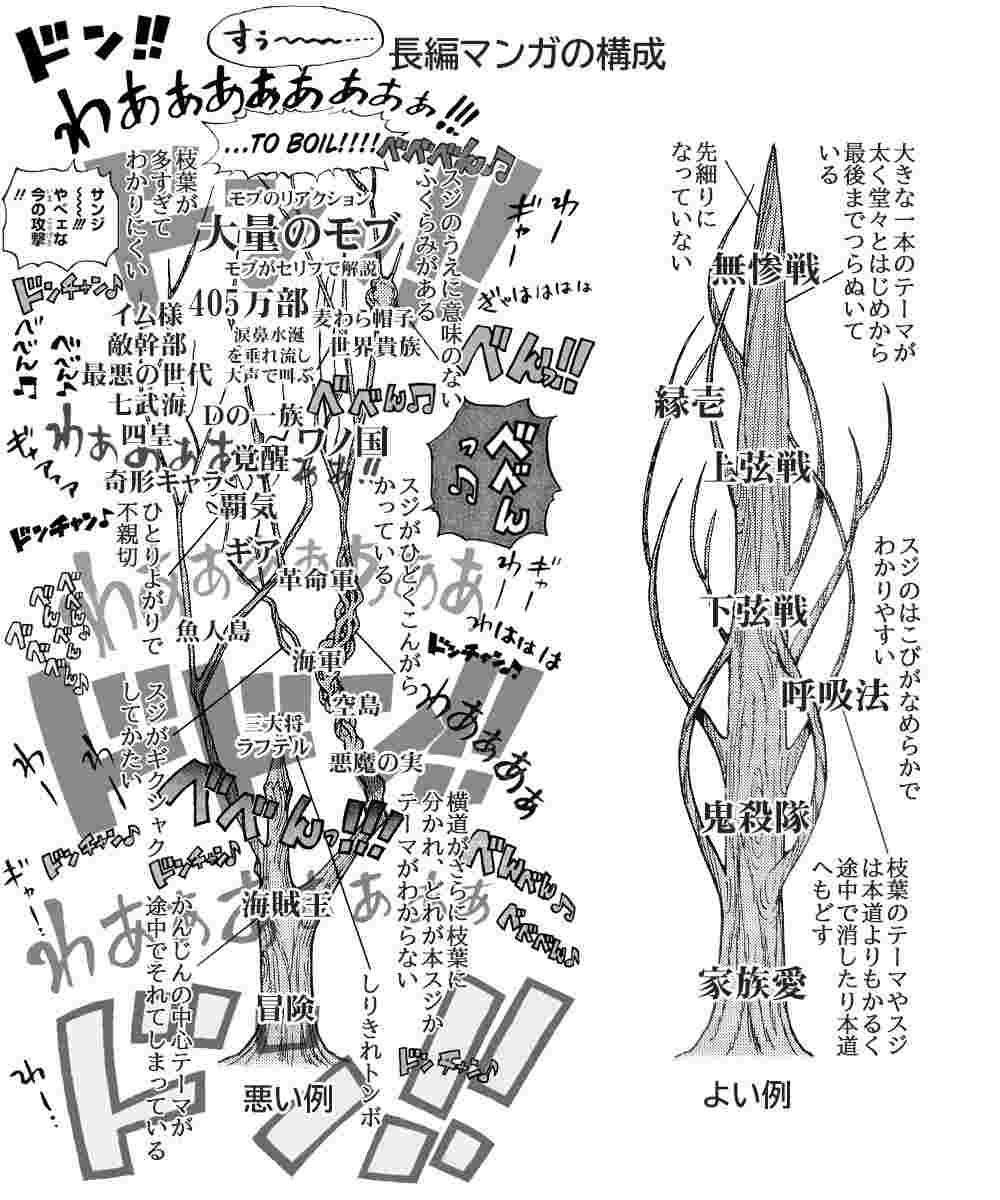 長編マンガの構成
ドン!!
すぅ〜〜〜……
わあぁぁあああぁぁぁ!!!
...TO BOIL!!!!
べべべん♫
サンジ
〜〜〜!!!
やべェな
今の攻撃
!!
枝葉が
多すぎて
わかりにくい
スジのうえに意味のない
ふくらみがある
モブのリアクション
大量のモブ
モブがセリフで解説
405万部
涙鼻水涎
を垂れ流し
大声で叫ぶ
麦わら帽子
世界貴族
イム様
敵幹部
最悪の世代
七武海
四皇
奇形キャラ
Dの一族
〜
ワノ国
覚醒
覇気
ギア
革命軍
魚人島
海軍
空島
三大将
ラフテル
悪魔の実
海賊王
冒険
ドンチャン♪
ぎゃはははは
べんっ!!
べべん♫
べべんっ♫
ギャー
わー
ドンチャン♪
わははは
ドンチャン♪
わあぁあぁ
ひとりよがりで
不親切
スジがひどくこんがら
かっている
スジがギクシャク
してかたい
べべんっ!!!
横道がさらに枝葉に
分かれ、どれが本スジか
テーマがわからない
かんじんの中心テーマが
途中でそれてしまっている
しりきれトンボ
ドンチャン♪
ドンチャン♪
べんべん♪
べべべん♪
ドンチャン♪
ドドン!!
ドン!!
悪い例
大きな一本のテーマが
太く堂々とはじめから
最後までつらぬいて
いる
先細りに
なっていない
無惨戦
縁壱
上弦戦
下弦戦
呼吸法
鬼殺隊
家族愛
スジのはこびがなめらかで
わかりやすい
枝葉のテーマやスジ
は本道よりもかるく
途中で消したり本道
へもどす
よい例